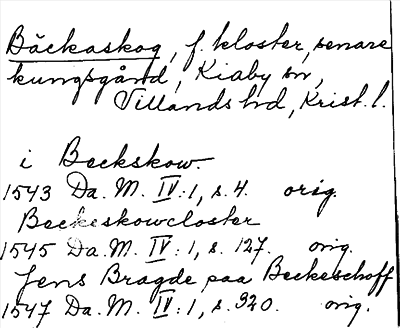 Bäckaskog, f. kloster, senare
kungsgård, Kiaby sn,
Villands hd, Krist. l.
i Beckskow.
1543 Da. M. IV:1, s. 4. orig.
Beckeskowcloster
1545 Da. M. IV:1, s. 127. orig.
Jens Bragde paa Beckeschoff
1547 Da. M. IV:1, s. 320. orig.